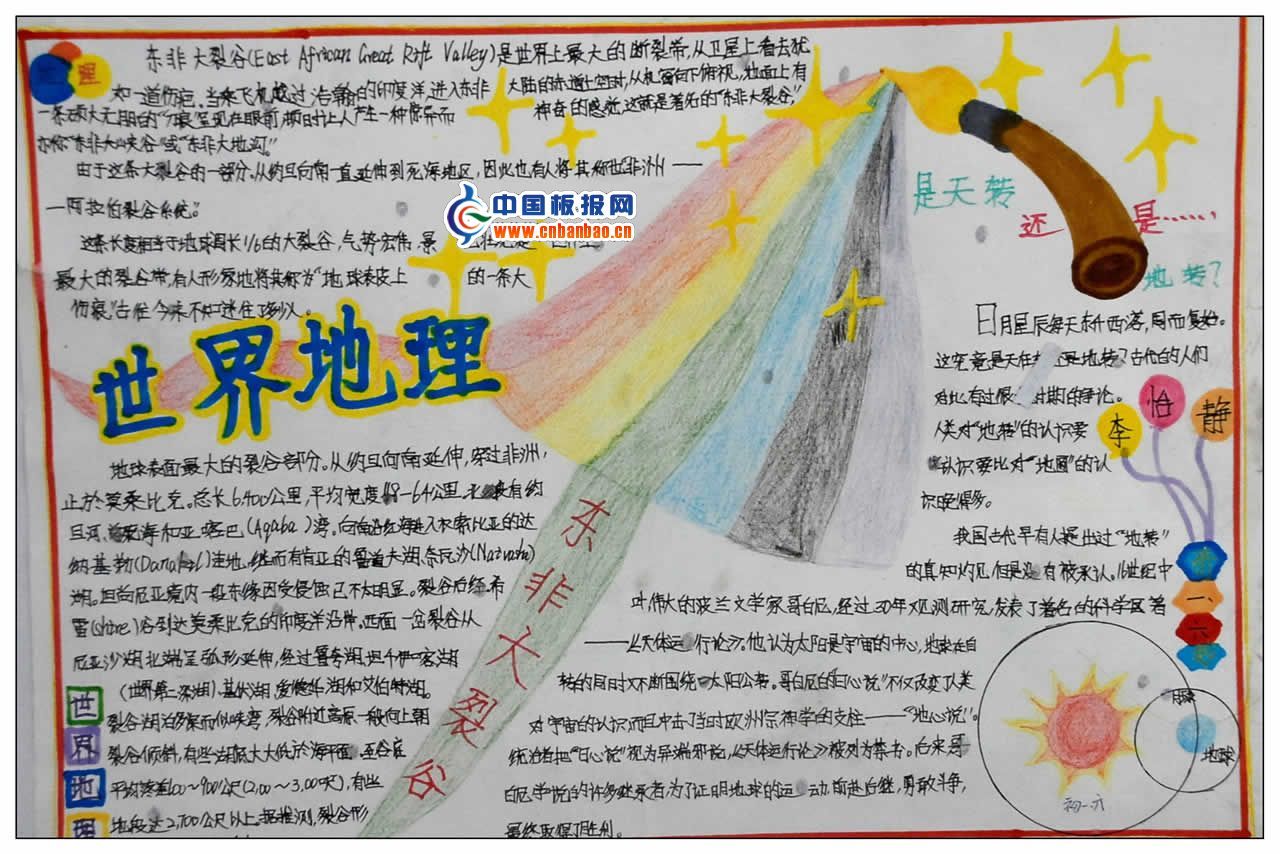 理
东非大裂谷(East African Great Rift Valley)是世界上最大的断裂带,从卫星上看去犹
如一道伤疤。当乘飞机越过浩瀚的印度洋,进入东非大陆的赤道上空时,从机窗向下俯视,地面上有
一条硕大无朋的"刀痕"呈现在眼前,顿时让人产生一种惊异而神奇的感觉,这就是著名的"东非大裂谷",
亦称"东非大峡谷"或"东非大地沟"。
由于这条大裂谷的一部分,从约旦向南一直延伸到死海地区,因此也有人将其称世"非洲——
—阿拉伯裂谷系统"。
这条长度相当于地球周长1/6的大裂谷,气势宏伟,景
最大的裂谷带,有人形象地将其称为"地球表皮上的一条大
伤痕",古往今来不知迷住了多少人。
中国板报网
www.cnbanbao.cn
世界地理
地球表面最大的裂谷部分。从约旦向南延伸,穿过非洲,
止於莫桑比克。总长6,400公里,平均宽度48-64公里。北
有约
旦河、死海和亚喀巴(Aqaba)湾。向南沿红海进入
的达
纳基勒(Danakil)洼地,继而有肯亚的
奈瓦沙(Naivasha)
湖。坦尚尼亚境内一段东缘因受侵蚀已不太明显。裂谷后经希
雷(shire)谷到达莫桑比克的印度洋沿岸。西面一岔裂谷从
尼亚沙湖北端呈弧形延伸,经过
(世界第二深湖)、基伏湖、爱德华湖和艾伯特湖。
裂谷湖泊多深而似峡湾,裂谷附近高原一般向上朝
裂谷倾斜,
平均落差600~900公尺
有些
地段达2,700公尺以上。据推测,裂谷形
世
界
地
理
东非大裂谷
是天转
还是……
地转?
日月星辰每天东升西落,周而复始。
这究竟是天在转还是地转?古代的人们
对此有过很
时期的争论。
人类对"地转"的认识要
认识要比对"地圆"的认
识晚得多。
我国古代早有人提出过"地转"
的真知灼见,但是没有被承认。16世纪中
叶,伟大的波兰天文学家哥白尼,经过30年观测研究,发表了著名的科学
著
——《天体运行论》。他认为太阳是宇宙的中心,地球在自
转的同时又不断围绕太阳公转。哥白尼的"日心说"不仅改变了人类
对宇宙的认识,而且冲击了当时欧洲宗神学的支柱——"地心说"。
统治者把"日心说"视为异端邪说,《天体运行论》被列为禁书。后来,哥
白尼学说的许多继承者,为了证明地球的运动,前赴后继,勇敢斗争,
最终取得了胜利。
李
怡
静
一、
六
月球
地球
初一